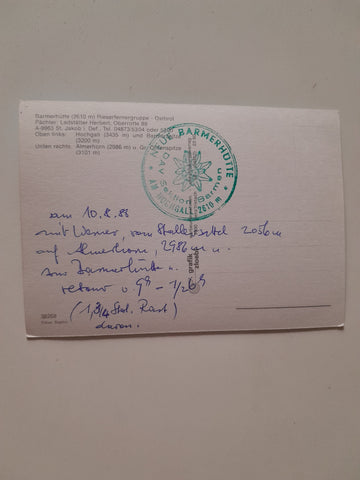 Barmerhütte (2610 m) Rieserfernergruppe - Osttirol
Pächter: Ladstätter Herbert, Oberrotte 89
A-9963 St. Jakob i. Def., Tel. 04873/5304 oder
Oben links: Hochgall (3435 m) und
(3200 m)
Unten rechts: Almerhorn (2986 m) u.
(3101 m)
NEUE BARMERHÜTTE
DAV Sektion Barmen
AM HOCHGALL 2610 m
grafik
am 10.8.88
mit Werner, vom Stallersattel 2056m
auf Almerhorn, 2986 m u.
zur Barmerhütte u.
retour v. 9h - 1/2 6h
(1 3/4 Std. Rast)
davon.